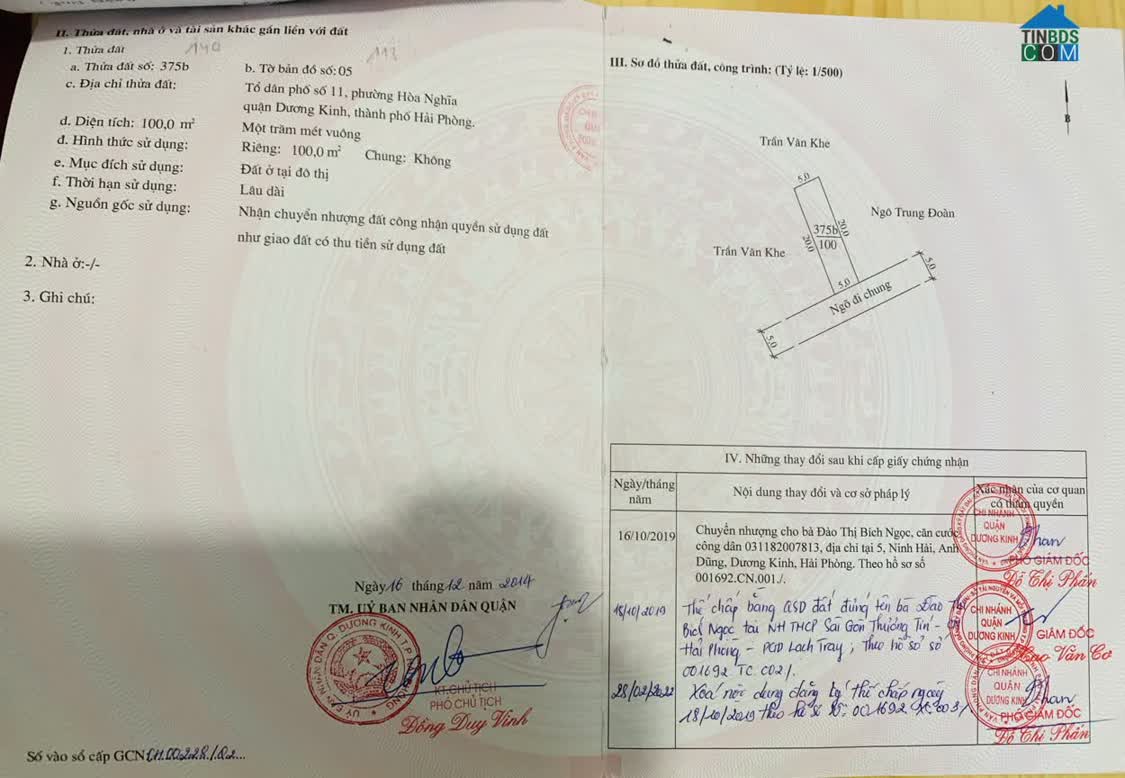 II. Thửa đất, nhà ở và tài sản khác gắn liền với đất
1. Thửa đất
140
113
a. Thửa đất số: 375b
b. Tờ bản đồ số: 05
c. Địa chỉ thửa đất:
Tổ dân phố số 11, phường Hòa Nghĩa
quận Dương Kinh, thành phố Hải Phòng.
d. Diện tích: 100,0 m²
Một trăm mét vuông
đ. Hình thức sử dụng:
Riêng: 100,0 m² Chung: Không
e. Mục đích sử dụng:
Đất ở tại đô thị
f. Thời hạn sử dụng:
Lâu dài
g. Nguồn gốc sử dụng:
Nhận chuyển nhượng đất công nhận quyền sử dụng đất
như giao đất có thu tiền sử dụng đất
2. Nhà ở:-/-
3. Ghi chú:
Ngày 16 tháng 12 năm 2014
TM. UỶ BAN NHÂN DÂN QUẬN
KT.CHỦ TỊCH
PHÓ CHỦ TỊCH
Đồng Duy Vinh
Số vào sổ cấp GCN:
TINBDS
COM
III. Sơ đồ thửa đất, công trình: (Tỷ lệ: 1/500)
B
Trần Văn Khe
5,0
Ngô Trung Đoàn
20,0
375b
100
20,0
Trần Văn Khe
5,0
5,0
Ngõ đi chung
5,0
IV. Những thay đổi sau khi cấp giấy chứng nhận
Ngày/tháng
năm
Nội dung thay đổi và cơ sở pháp lý
Xác nhận của cơ quan
có thẩm quyền
16/10/2019
Chuyển nhượng cho bà Đào Thị Bích Ngọc, căn cước
công dân 031182007813, địa chỉ tại 5, Ninh Hải, Anh
Dũng, Dương Kinh, Hải Phòng. Theo hồ sơ số
001692.CN.001./.
CHI NHÁNH
QUẬN
DƯƠNG KINH
PHÓ GIÁM ĐỐC
Đỗ Thị Phấn
18/10/2019
Thế chấp bằng QSD đất đứng tên bà Đào Thị
Bích Ngọc tại NH TMCP Sài Gòn Thương Tín - CN
Hải Phòng - PGD Lạch Tray, theo hồ sơ số
001692.TC.002/.
CHI NHÁNH
QUẬN
DƯƠNG KINH
GIÁM ĐỐC
Cao Văn Cơ
28/02/2022
Xoá nội dung đăng ký thế chấp ngày
18/10/2019 theo hồ sơ số: 001692.XC.003/.
CHI NHÁNH
QUẬN
DƯƠNG KINH
PHÓ GIÁM ĐỐC
Đỗ Thị Phấn